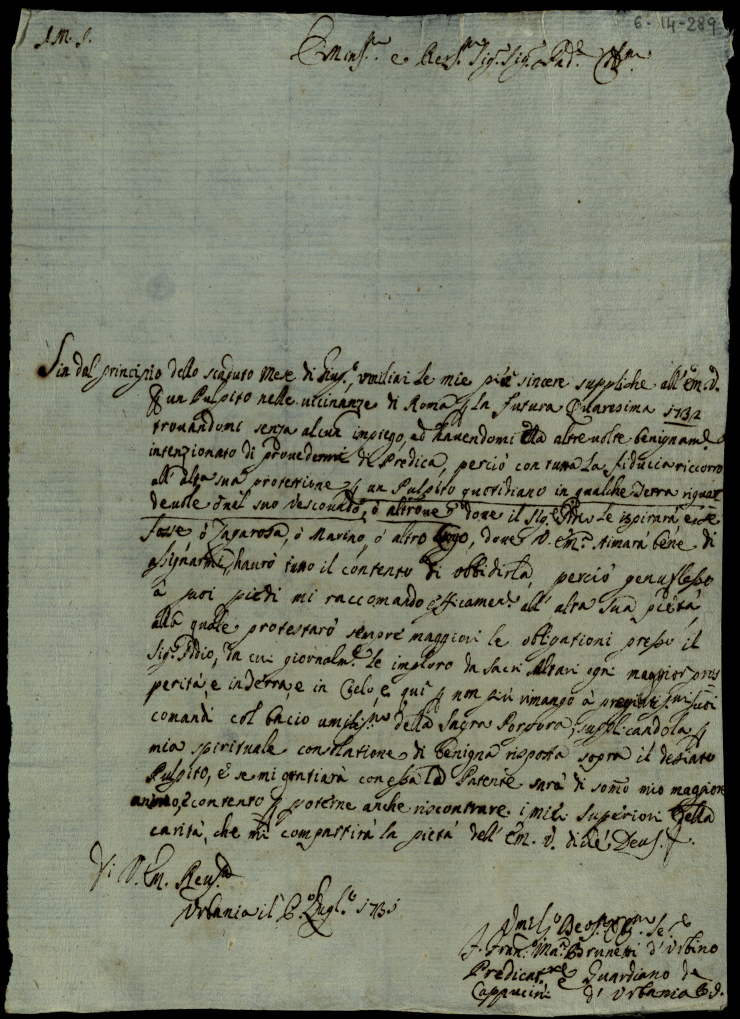 6-14-289
J. M. J.
Emin.mo e Rev.mo Sig.r Sig.r Pad.
Sin dal principio dello scaduto Mese di Giug.o umiliai le mie più sincere suppliche all'Em. V.
un Pulpito nelle vicinanze di Roma p la futura Quaresima 1732
trovandomi senza alcun impiego, ed havendomi Ella altre volte benignam.e
intenzionato di provedermi di Predica, perciò con tutta la fiducia ricorro
all'alta sua protettione p un Pulpito quotidiano in qualche Terra riguar
devole ò nel suo Vescovado, ò altrove dove il Sig.e le ispirarà, e se
fosse ò Zagarola, ò Marino, ò altro luogo, dove V. Em.a stimarà bene di
assignarmi, haurò tutto il contento di obbidirla, perciò genuflesso
a suoi piedi mi raccomando efficacemen.e all'alta sua pietà,
alla quale protestarò sempre maggiori le obligationi presso il
Sig.e Iddio, da cui giornalm.e le imploro da Sacri Altari ogni maggior pros
perità, e in Terra, e in Cielo, e qui p non più rimango à suoi
comandi col bacio umiliss.mo della Sagra Porpora, supplicandola p
mia spirituale consolatione di benigna risposta sopra il desiato
Pulpito, e se mi gratiarà con essa la Patente sarà di sommo mio maggiore
animo, e contento p poterne anche riscontrare i miei Superiori della
carità, che mi compartirà la pietà dell'Em. V. di ch'è Deus.
Di V. Em. Rev.ma
Urbania il 6 Lugl.o 1731
Umil.o Devot. Se.e
F. Fran.o Ma. Brunetti d'Urbino
Predicat.re e Guardiano de
Cappucini d'Urbania